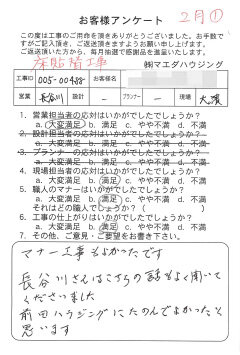 お客様アンケート
2月①
この度は工事のご用命を頂きありがとうございました。お手数で
すがご記入頂き、ご返送頂きますようお願い申し上げます。
ご返送頂いた方から、毎月抽選で感謝品を進呈いたします。
床貼替工事
㈱マエダハウジング
工事ID 005-00488- お客様名
営業 長谷川 設計 プランナー ー 現場 大濱
1. 営業担当者の応対はいかがでしたでしょうか？
a. 大変満足 b. 満足 c. やや不満 d. 不満
2. 設計担当者の応対はいかがでしたでしょうか？
a. 大変満足 b. 満足 c. やや不満 d. 不満
3. プランナーの応対はいかがでしたでしょうか？
a. 大変満足 b. 満足 c. やや不満 d. 不満
4. 現場担当者の応対はいかがでしたでしょうか？
a. 大変満足 b. 満足 c. やや不満 d. 不満
5. 職人のマナーはいかがでしたでしょうか？
a. 大変満足 b. 満足 c. やや不満 d. 不満
それはどの職人でしょうか？(
6. 工事の仕上がりはいかがでしたでしょうか？
a. 大変満足 b. 満足 c. やや不満 d. 不満
7. その他、ご意見・ご要望をお書き下さい。
マナー工事もよかったです
長谷川さんはこちらの話もよく聞いて
くださいました
前田ハウジングにたのんでよかったと
思います